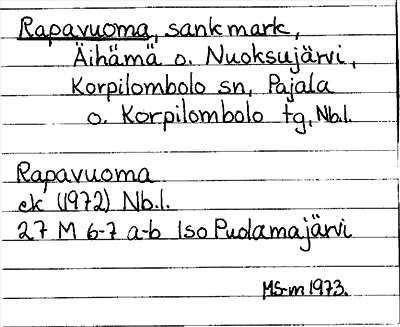 Rapavuoma, sankmark,
Äihämä o. Nuoksujärvi,
Korpilombolo sn, Pajala
o. Korpilombolo tg, Nb.l.
Rapavuoma
ek (1972) Nb.l.
27 M 6-7 a-b Iso Puolamajärvi
MS-m 1973.